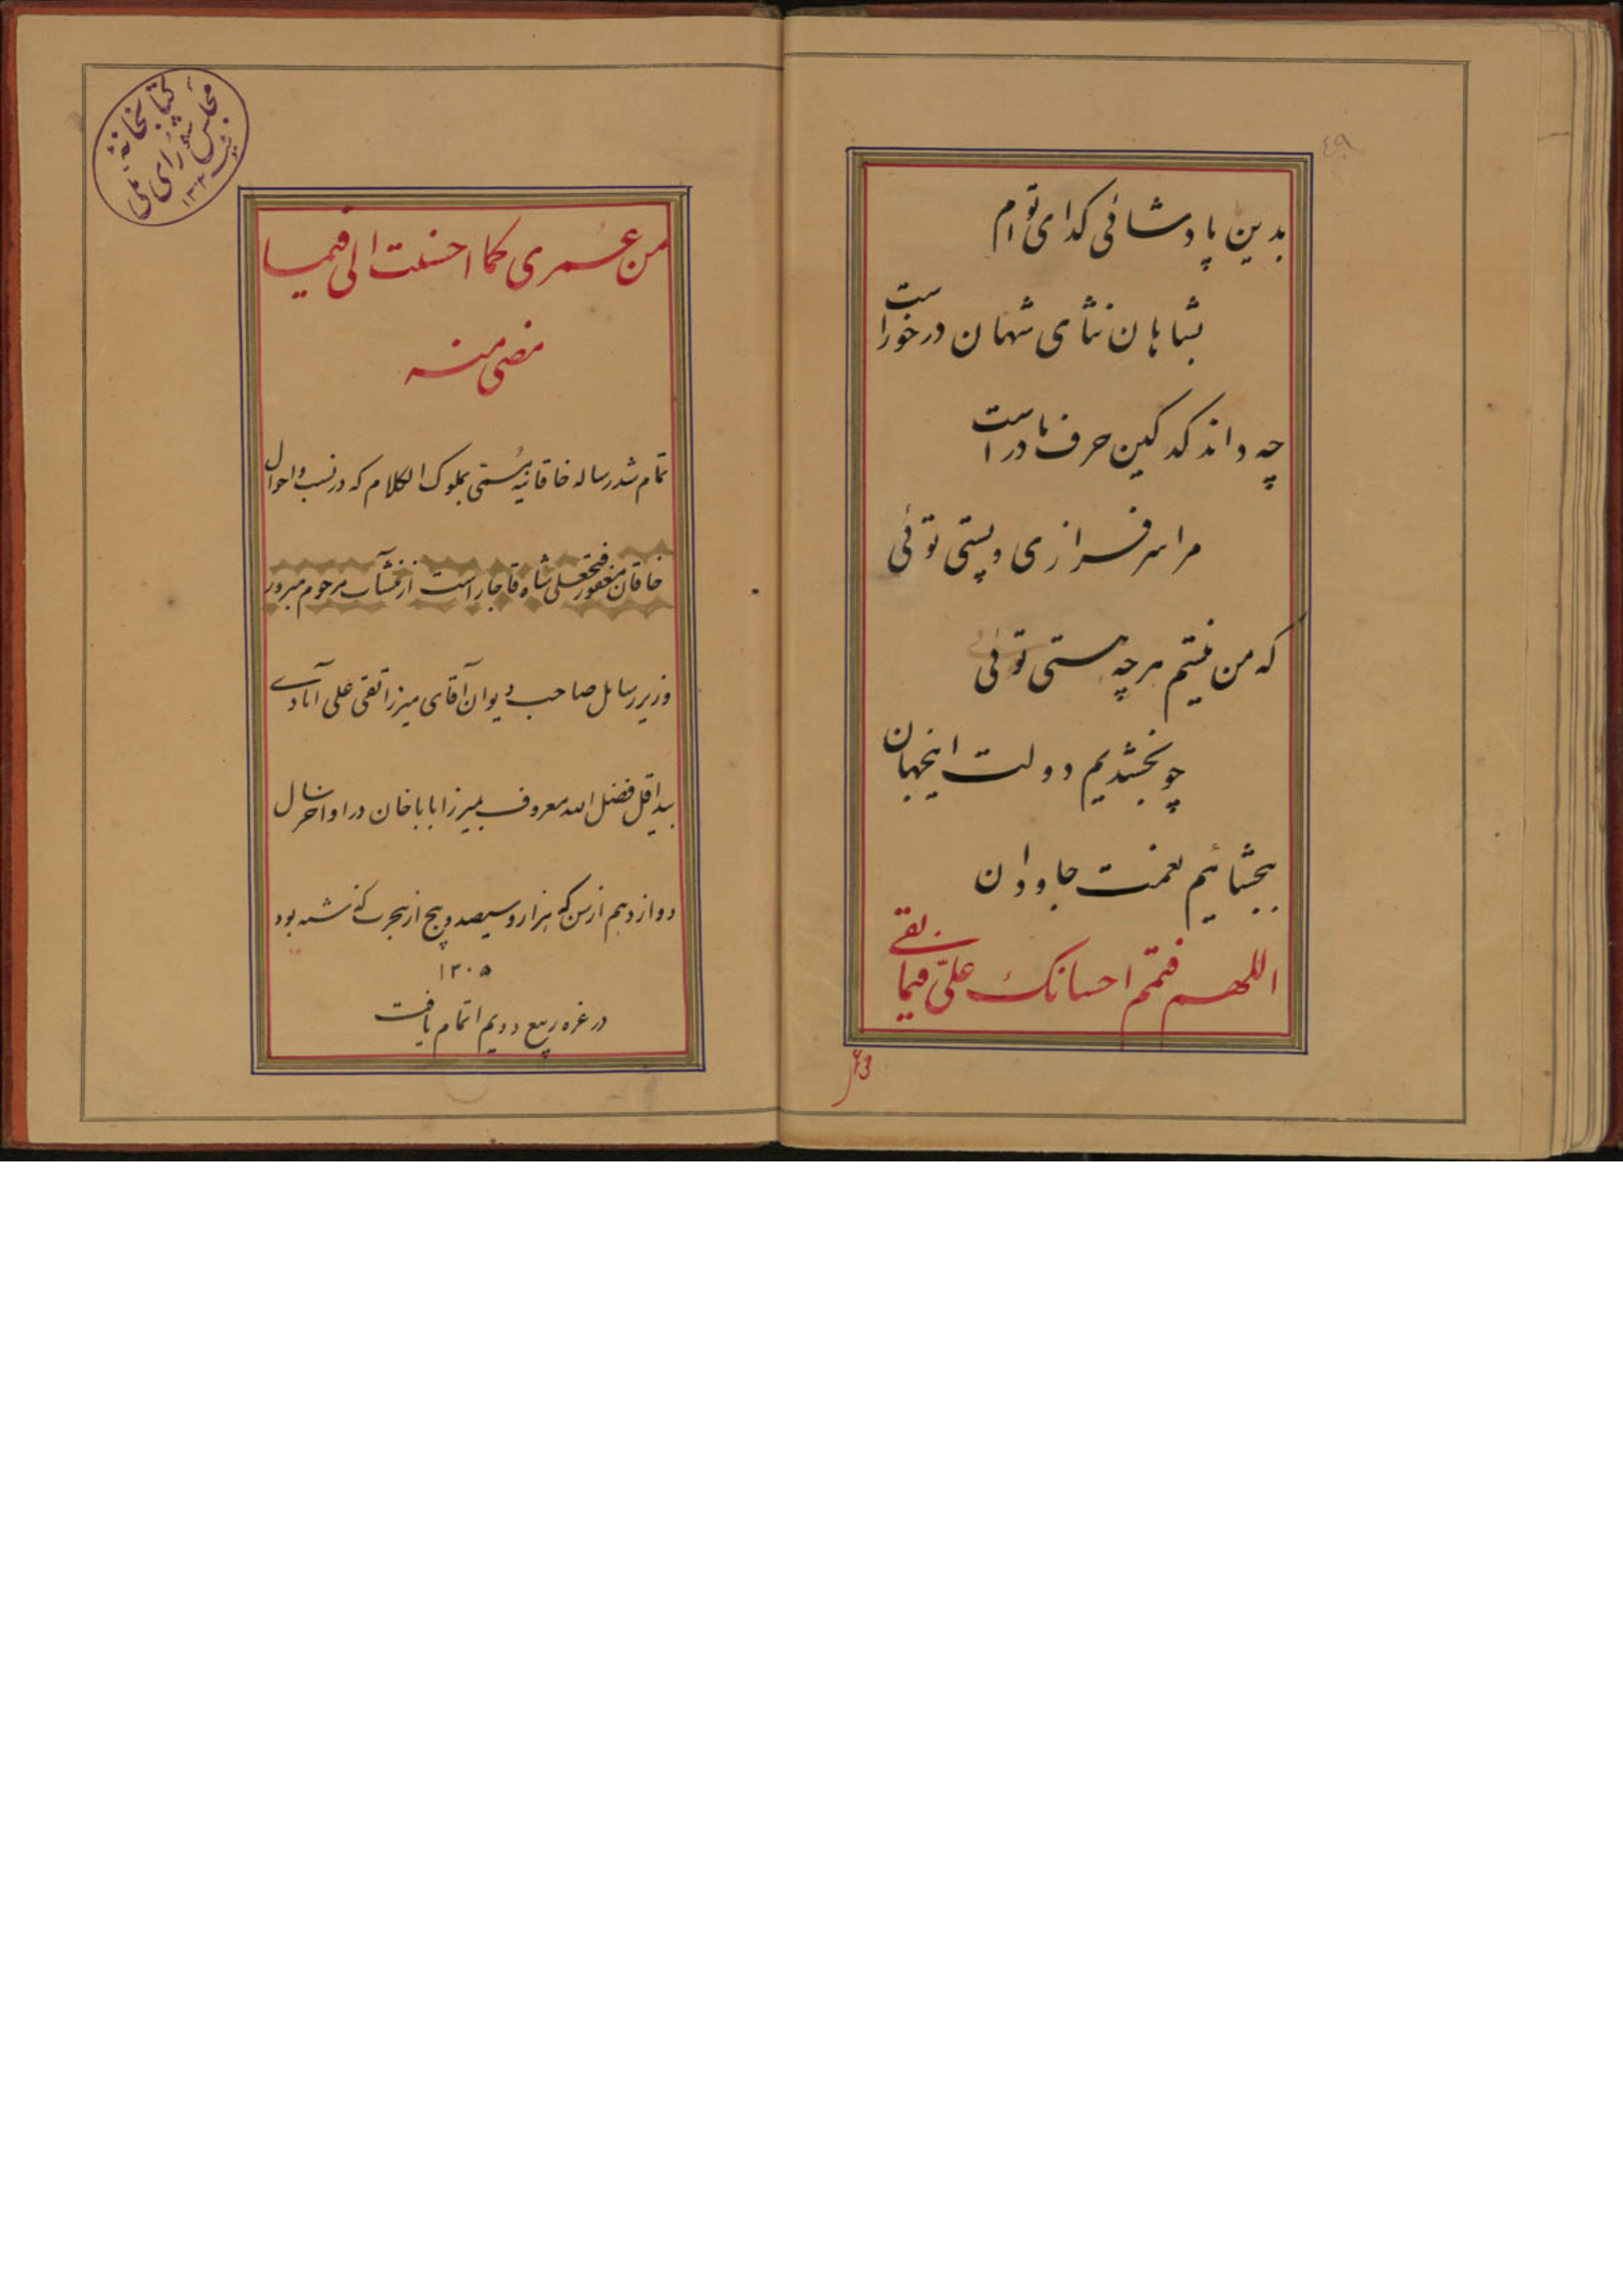 ۴۹
بدین پادشائی گدای توام
بشاهان ثنای شهان درخوراست
چه داند گدا کین حرف نادراست
مرا سرفرازی و پستی توئی
که من نیستم هرچه هستی توئی
چو بخشدیم دولت اینجهان
ببخشائیم نعمت جاودان
اللهم فتمّم احسانک علیّ فیما بقی
من عمری کما احسنت الی فیما
مضی منه
تمام شد رساله خاقانیه مسمّی بملوک الکلام که در نسب و احوال
خاقان مغفور فتحعلی شاه قاجار است از منشآت مرحوم مبرور
وزیر رسایل صاحب دیوان آقای میرزا تقی علی آبادی
بید اقل فضل الله معروف بمیرزا بابا خان در اواخر سال
دوازدهم از سن که هزار و سیصد و پنج از هجرت گذشته بود
۱۳۰۵
در غره ربیع دویم اتمام یافت
کتابخانهٔ
مجلس شورای ملی